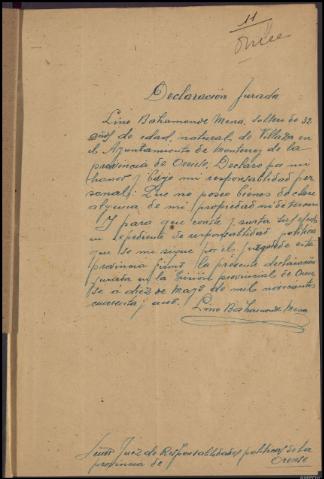 11
once
Declaración Jurada
Lino Bahamonde Mena, soltero de 32
años de edad, natural de Villaza en
el Ayuntamiento de Monterrey de la
provincia de Orense, Declaro por mi
honor y bajo mi responsabilidad per
sonal: Que no poseo bienes de clase
alguna de mi propiedad ni de
Y para que conste y surta sus efectos
en expediente de responsabilidad política
que se me sigue por el juzgado de esta
provincia firmo la presente declaración
jurada en la Prisión provincial de Oren
se a diez de Mayo de mil novecientos
cuarenta y uno. Lino Bahamonde Mena
Señor Juez de Responsabilidades políticas de la
provincia de Orense